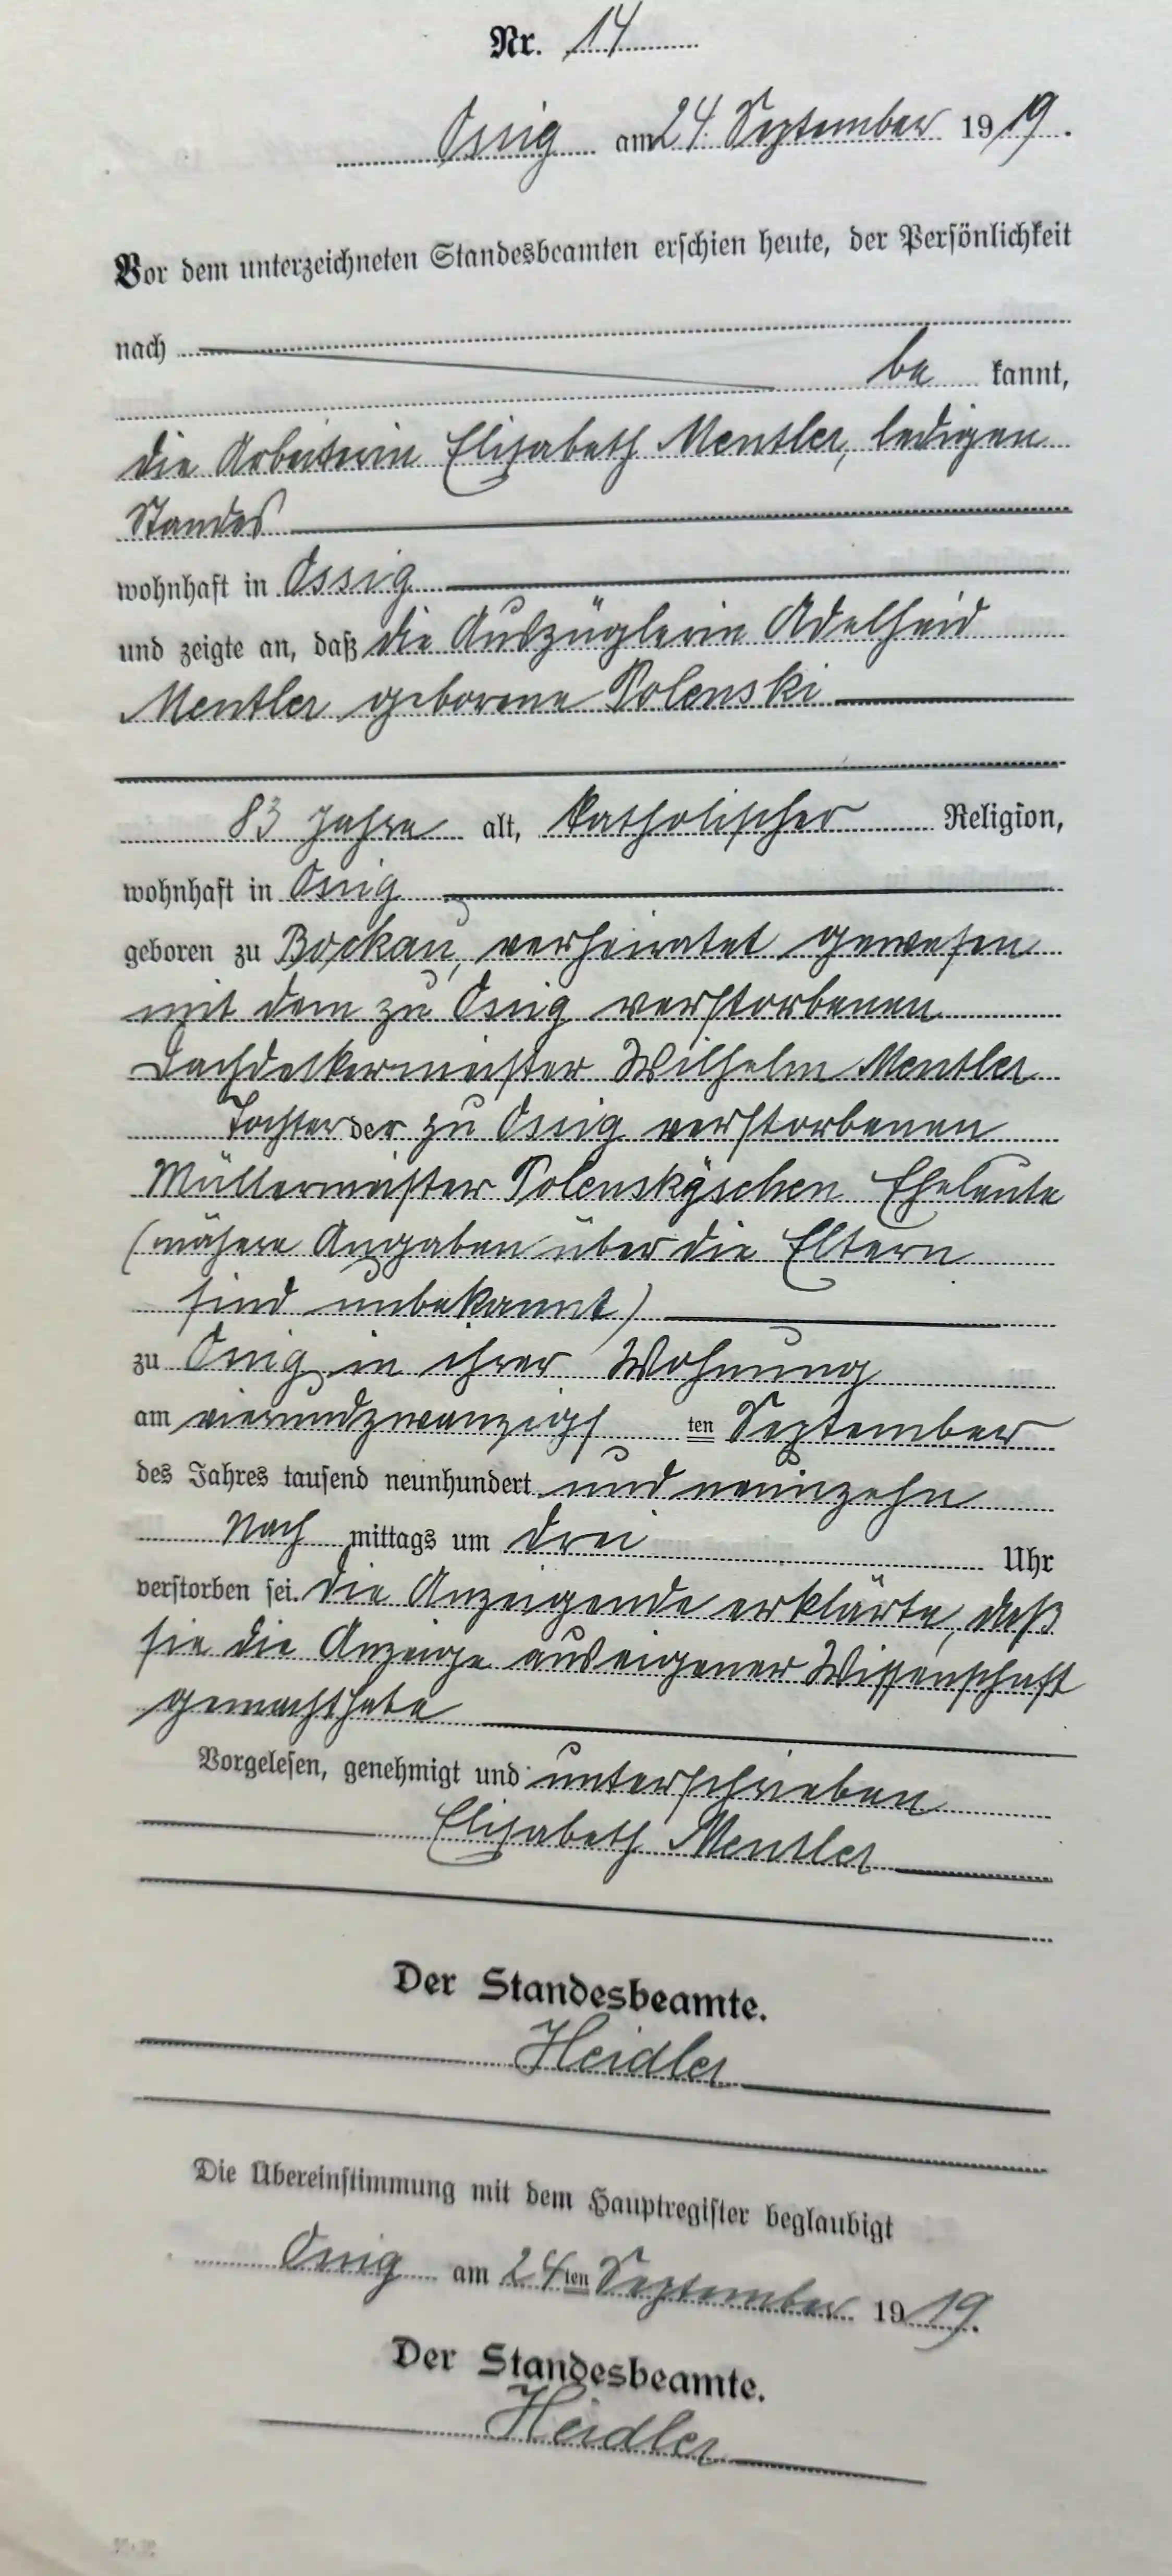 Nr. 14
Ossig am 24. September 1919.
Vor dem unterzeichneten Standesbeamten erschien heute, der Persönlichkeit
nach
be kannt,
die Arbeiterin Elisabeth Mentler, ledigen
Standes
wohnhaft in Ossig
und zeigte an, daß die Auszüglerin Adelheid
Mentler geborene Polenski
83 Jahre alt, katholischer Religion,
wohnhaft in Ossig
geboren zu Bockau, verheiratet gewesen
mit dem zu Ossig verstorbenen
Dachdeckermeister Wilhelm Mentler
Tochter der zu Ossig verstorbenen
Müllermeister Polenskyschen Eheleute
(nähere Angaben über die Eltern
sind unbekannt)
zu Ossig in ihrer Wohnung
am vierundzwanzigsten September
des Jahres tausend neunhundert und neunzehn
Nach mittags um drei Uhr
verstorben sei. Die Anzeigende erklärte, daß
sie die Anzeige aus eigener Wissenschaft
gemacht habe
Vorgelesen, genehmigt und unterschrieben
Elisabeth Mentler
Der Standesbeamte.
Heidler
Die Übereinstimmung mit dem Hauptregister beglaubigt
Ossig am 24ten September 1919.
Der Standesbeamte.
Heidler